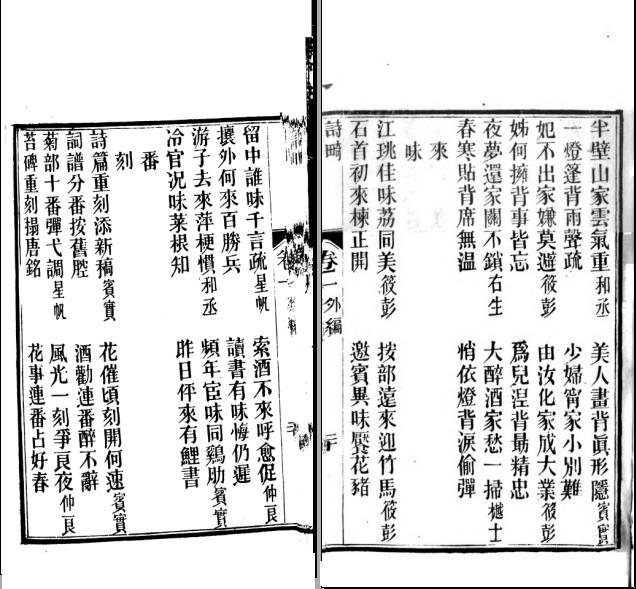 半壁山家雲氣重和丞　美人畫背眞形隱賓實
一燈篷背雨聲疏　少婦甯家小別難
妃不出家嫌莫避筱彭　由汝化家成大業筱彭
姊何擁背事皆忘　爲兒涅背最精忠
夜夢還家關不鎖右生　大醉酒家愁一掃樾士
春寒貼背席無温　悄依燈背淚偷彈
來　味
江珧佳味荔同美筱彭　按部遠來迎竹馬筱彭
石首初來楝正開　邀賓異味饜花豬
詩畸　卷一外編　二
留中誰味千言疏星帆　索酒不來呼愈促仲良
攘外何來百勝兵　讀書有味悔仍遲
游子去來萍梗慣和丞　頻年宦味同鷄肋賓實
冷官況味菜根知　昨日伻來有鯉書
番　刻
詩篇重刻添新稿賓實　花催頃刻開何速賓實
詞譜分番按舊腔　酒勸連番醉不辭
菊部十番彈弋調星帆　風光一刻爭良夜仲良
苔碑重刻搨唐銘　花事連番占好春